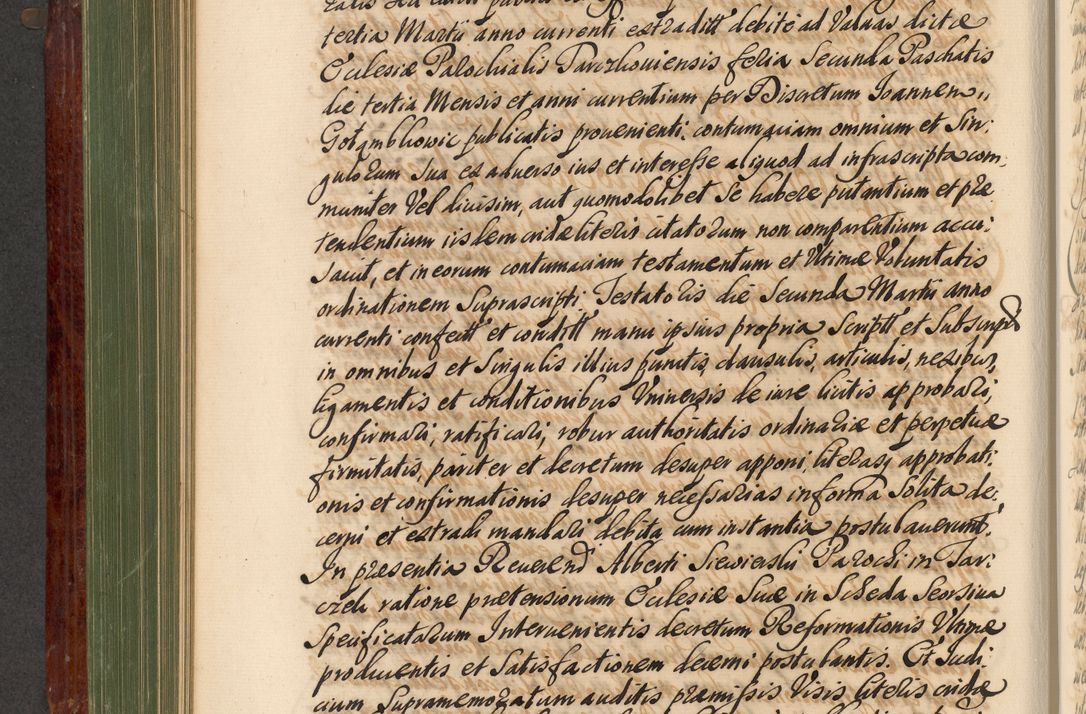 tertia Martii anno currenti extraditt debite ad Valuas dictæ
Ecclesiæ Parochialis Parczkouiensis feria Secunda Paschatis
die tertia Mensis et anni currentium per Discretum Joannem
Gołąmbkowic publicatis prouenienti, contumaciam omnium et Sin:
gulorum Sua ex aduerso ius et interesse aliquod ad infrascripta com:
muniter Vel diuisim, aut quomodolibet Se habere putantium et præ
tendentium iisdem cridæ literis citatorum non comparentium accu:
sauit, et in eorum contumaciam testamentum et Vltimæ Voluntatis
ordinationem Suprascripti Testatoris die Secunda Martii anno
currenti confectt et conditt manu ipsius propria Scriptt et Subscript
in omnibus et Singulis illius punctis, clausulis, articulis, nexibus,
ligamentis et conditionibus Vniuersis de iure licitis approbari,
confirmari, ratificari, robur authoritatis ordinariæ et perpetuæ
firmitatis, pariter et decretum desuper apponi, literasq approbati:
onis et confirmationis desuper necessarias in forma Solita de:
cerni et extradi mandari debita cum instantia postulauerunt.
In præsentia Reuerend Alberti Siewierski Parochi in Tar:
czek ratione prætensionum Ecclesiæ Suæ in Scheda Seorsiua
Specificatarum Interuenientis decretum Reformationis Vltimæ
producentis et Satisfactionem decerni postulantis. Et Iudi:
cium Supramemoratum auditis præmissis Visis literis cridæ